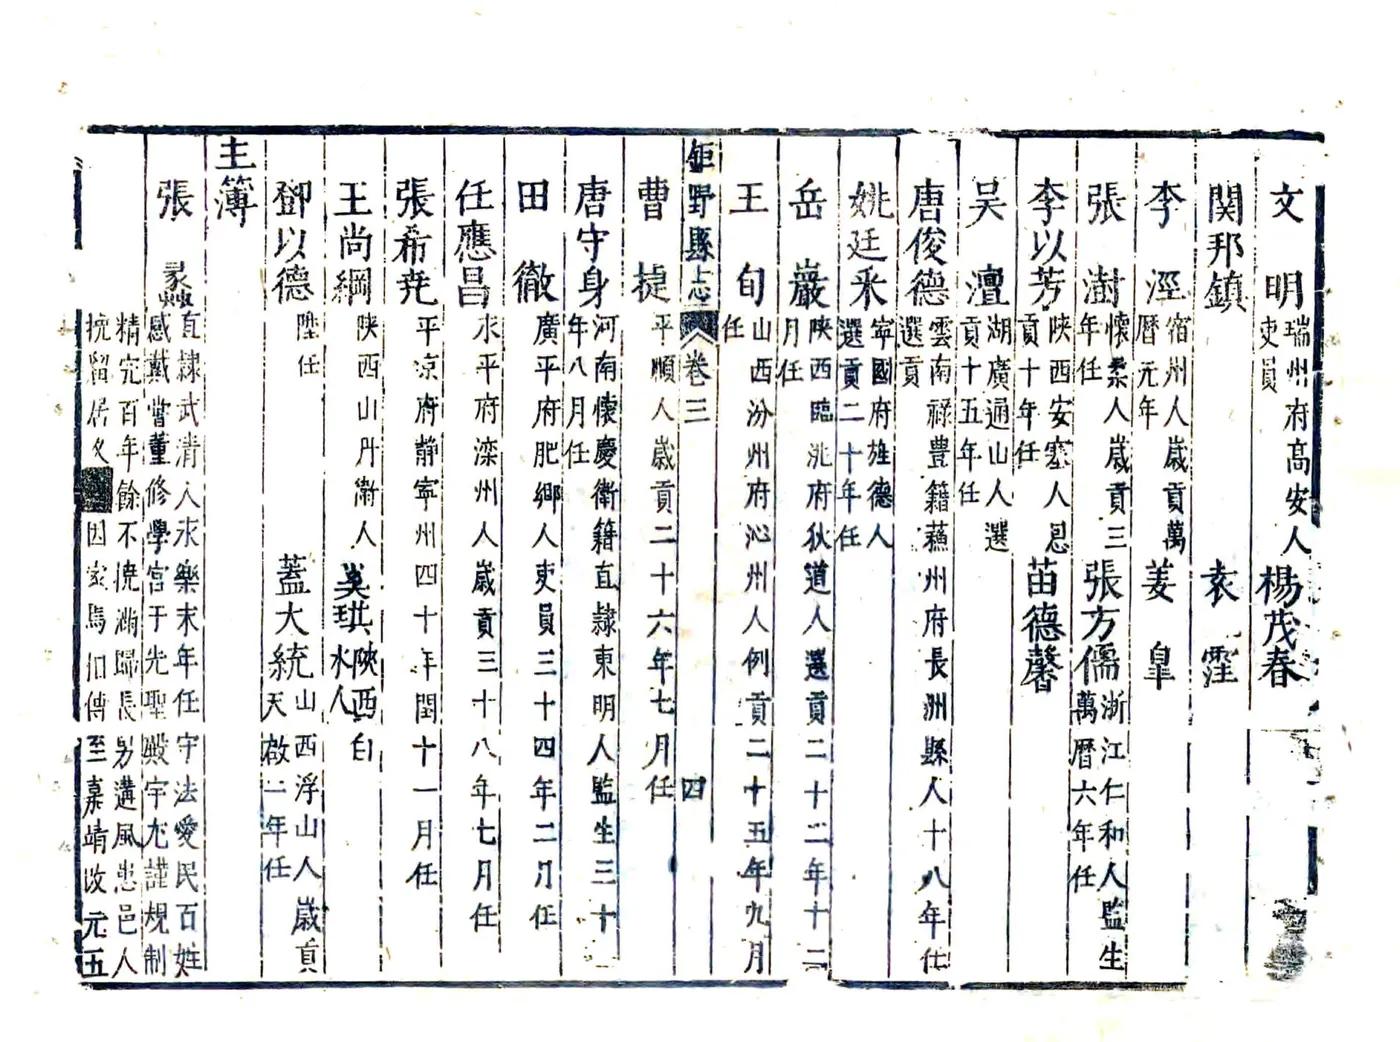 文明瑞州府高安人吏員 楊茂春
関邦鎮 袁霔
李涇宿州人歲貢萬曆元年 姜皐
張澍懷柔人歲貢三年任 張方儒浙江仁和人監生萬曆六年任
李以芳陝西安塞人恩貢十年任 苗德馨
吴澶湖廣通山人選貢十五年任
唐俊德雲南祿豊籍蘓州府長洲縣人十八年任選貢
姚廷釆寧國府旌德人選貢二十年任
岳巖陝西臨洮府秋道人選貢二十二年十二月任
王旬山西汾州府沁州人例貢二十五年九月任
鉅野縣志 卷三 四
曹捷平順人歲貢二十六年七月任
唐守身河南懷慶衛籍直隷東明人監生三十年八月任
田徹廣平府肥鄉人吏員三十四年二月任
任應昌永平府滦州人歲貢三十八年七月任
張希尭平凉府靜寧州四十年閏十一月任
王尚綱陝西山丹衛人 吴珙陝西白水人
鄧以德陞任 蓋大統山西浮山人歲貢天啟二年任
主簿
張蟸直隷武清人永樂末年任守法愛民百姓
感戴嘗董修學宮于先聖殿宇尤謹規制
精完百年餘不撓滿歸長另遘風患邑人
挽留居久因家焉相傳至嘉靖改元五